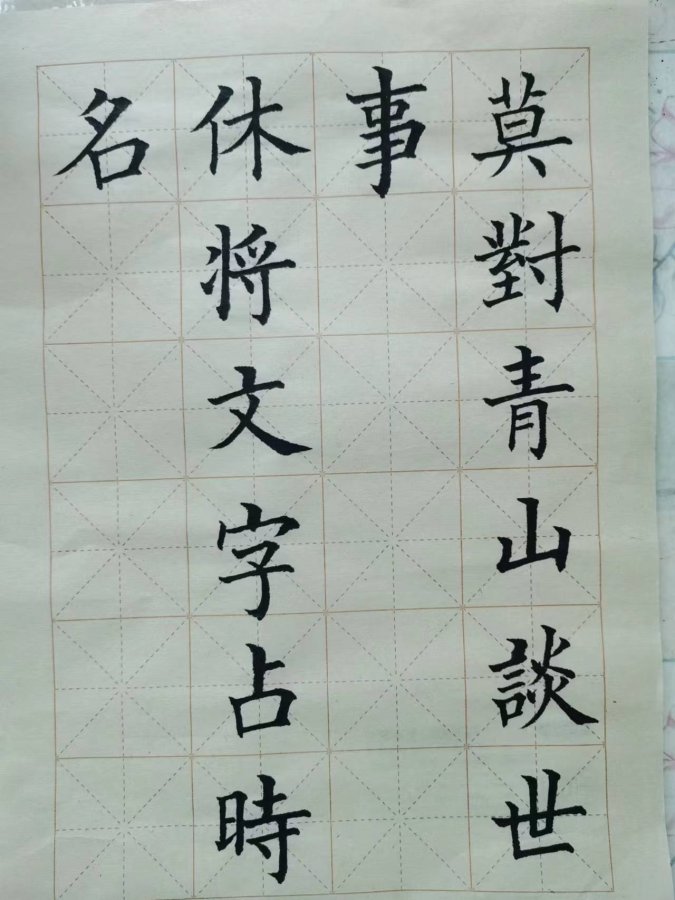 莫對青山談世
事
休将文字占時
名